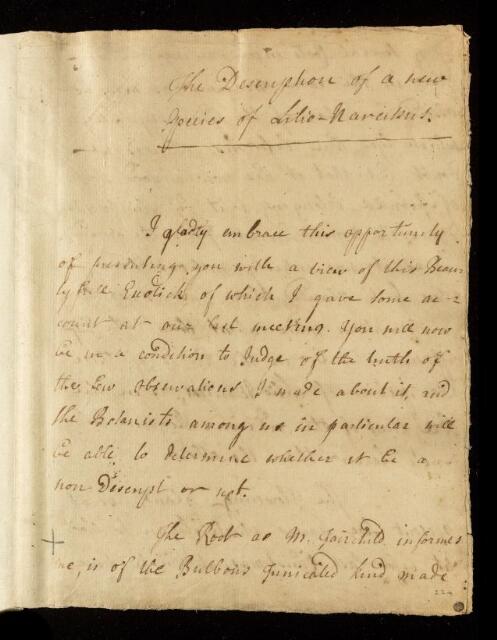 The Description of a new
Species of Lilio-Narcissus.
I gladly embrace this opportunity
of presenting you with a view of this Beau-
tyfull Exotick of which I gave some ac-
count at our last meeting. You will now
be in a condition to Judge of the truth of
the few observations I made about it, and
the Botanists among us in particular will
be able to determine whether it be a
non Descript or not.
The Root as Mr. Fairchild informes
me, is of the Bulbous Tunicated kind, made